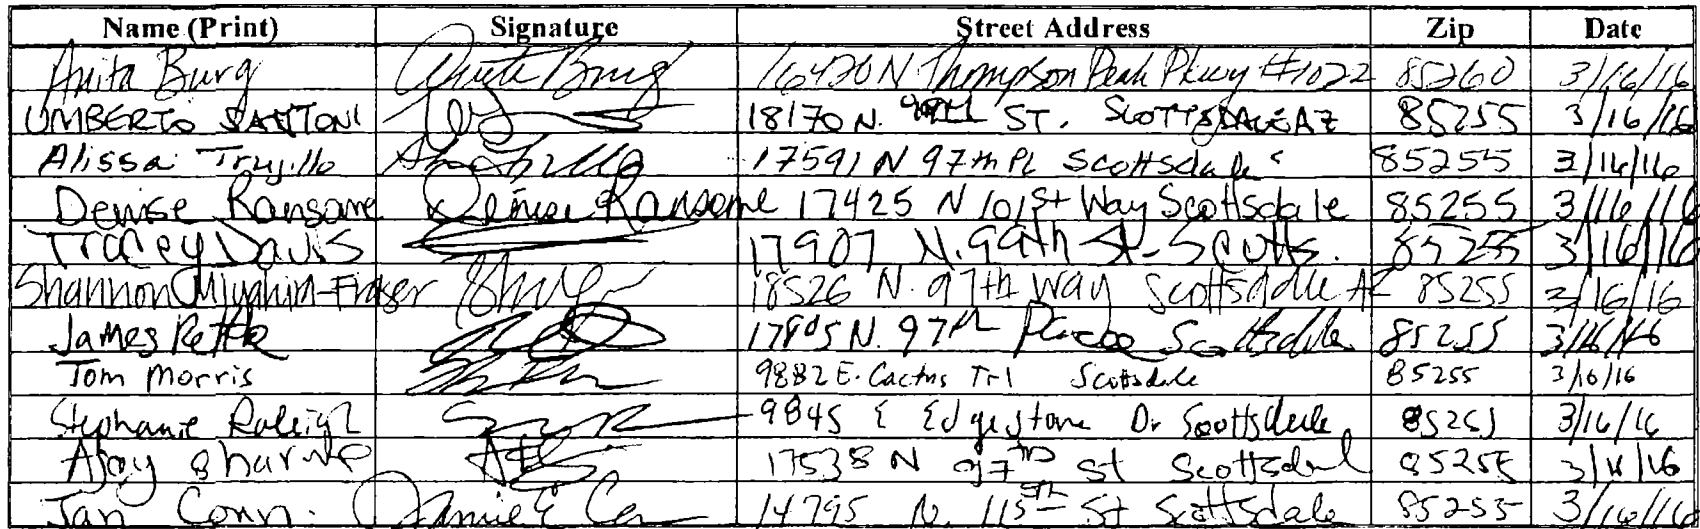 Name (Print) Signature Street Address Zip Date
Anita Burg Anita Burg 16420 N Thompson Peak Pkwy #1022 85260 3/16/16
UMBERTO SANTONI 18170 N. ST. SCOTTSDALE AZ 85255 3/16/16
Alissa Trujillo 17591 N 97th PL Scottsdale 85255 3/16/16
Denise Ransome Denise Ransome 17425 N 101st Way Scottsdale 85255 3/16/16
Tracey Davis 17907 N. 99th St. Scotts. 85255 3/16/16
Shannon 18526 N. 97th Way Scottsdale AZ 85255 3/16/16
James 17805 N. 97th Place Scottsdale 85255 3/16/16
Tom Morris 9882 E. Cactus Trl Scottsdale 85255 3/16/16
Stephanie Raleigh 9845 E Edgestone Dr Scottsdale 3/16/16
Ajay Sharma 17538 N 97th St Scottsdale 85255 3/16/16
Jan Conn. 14795 N. 115th St Scottsdale 85255 3/16/16